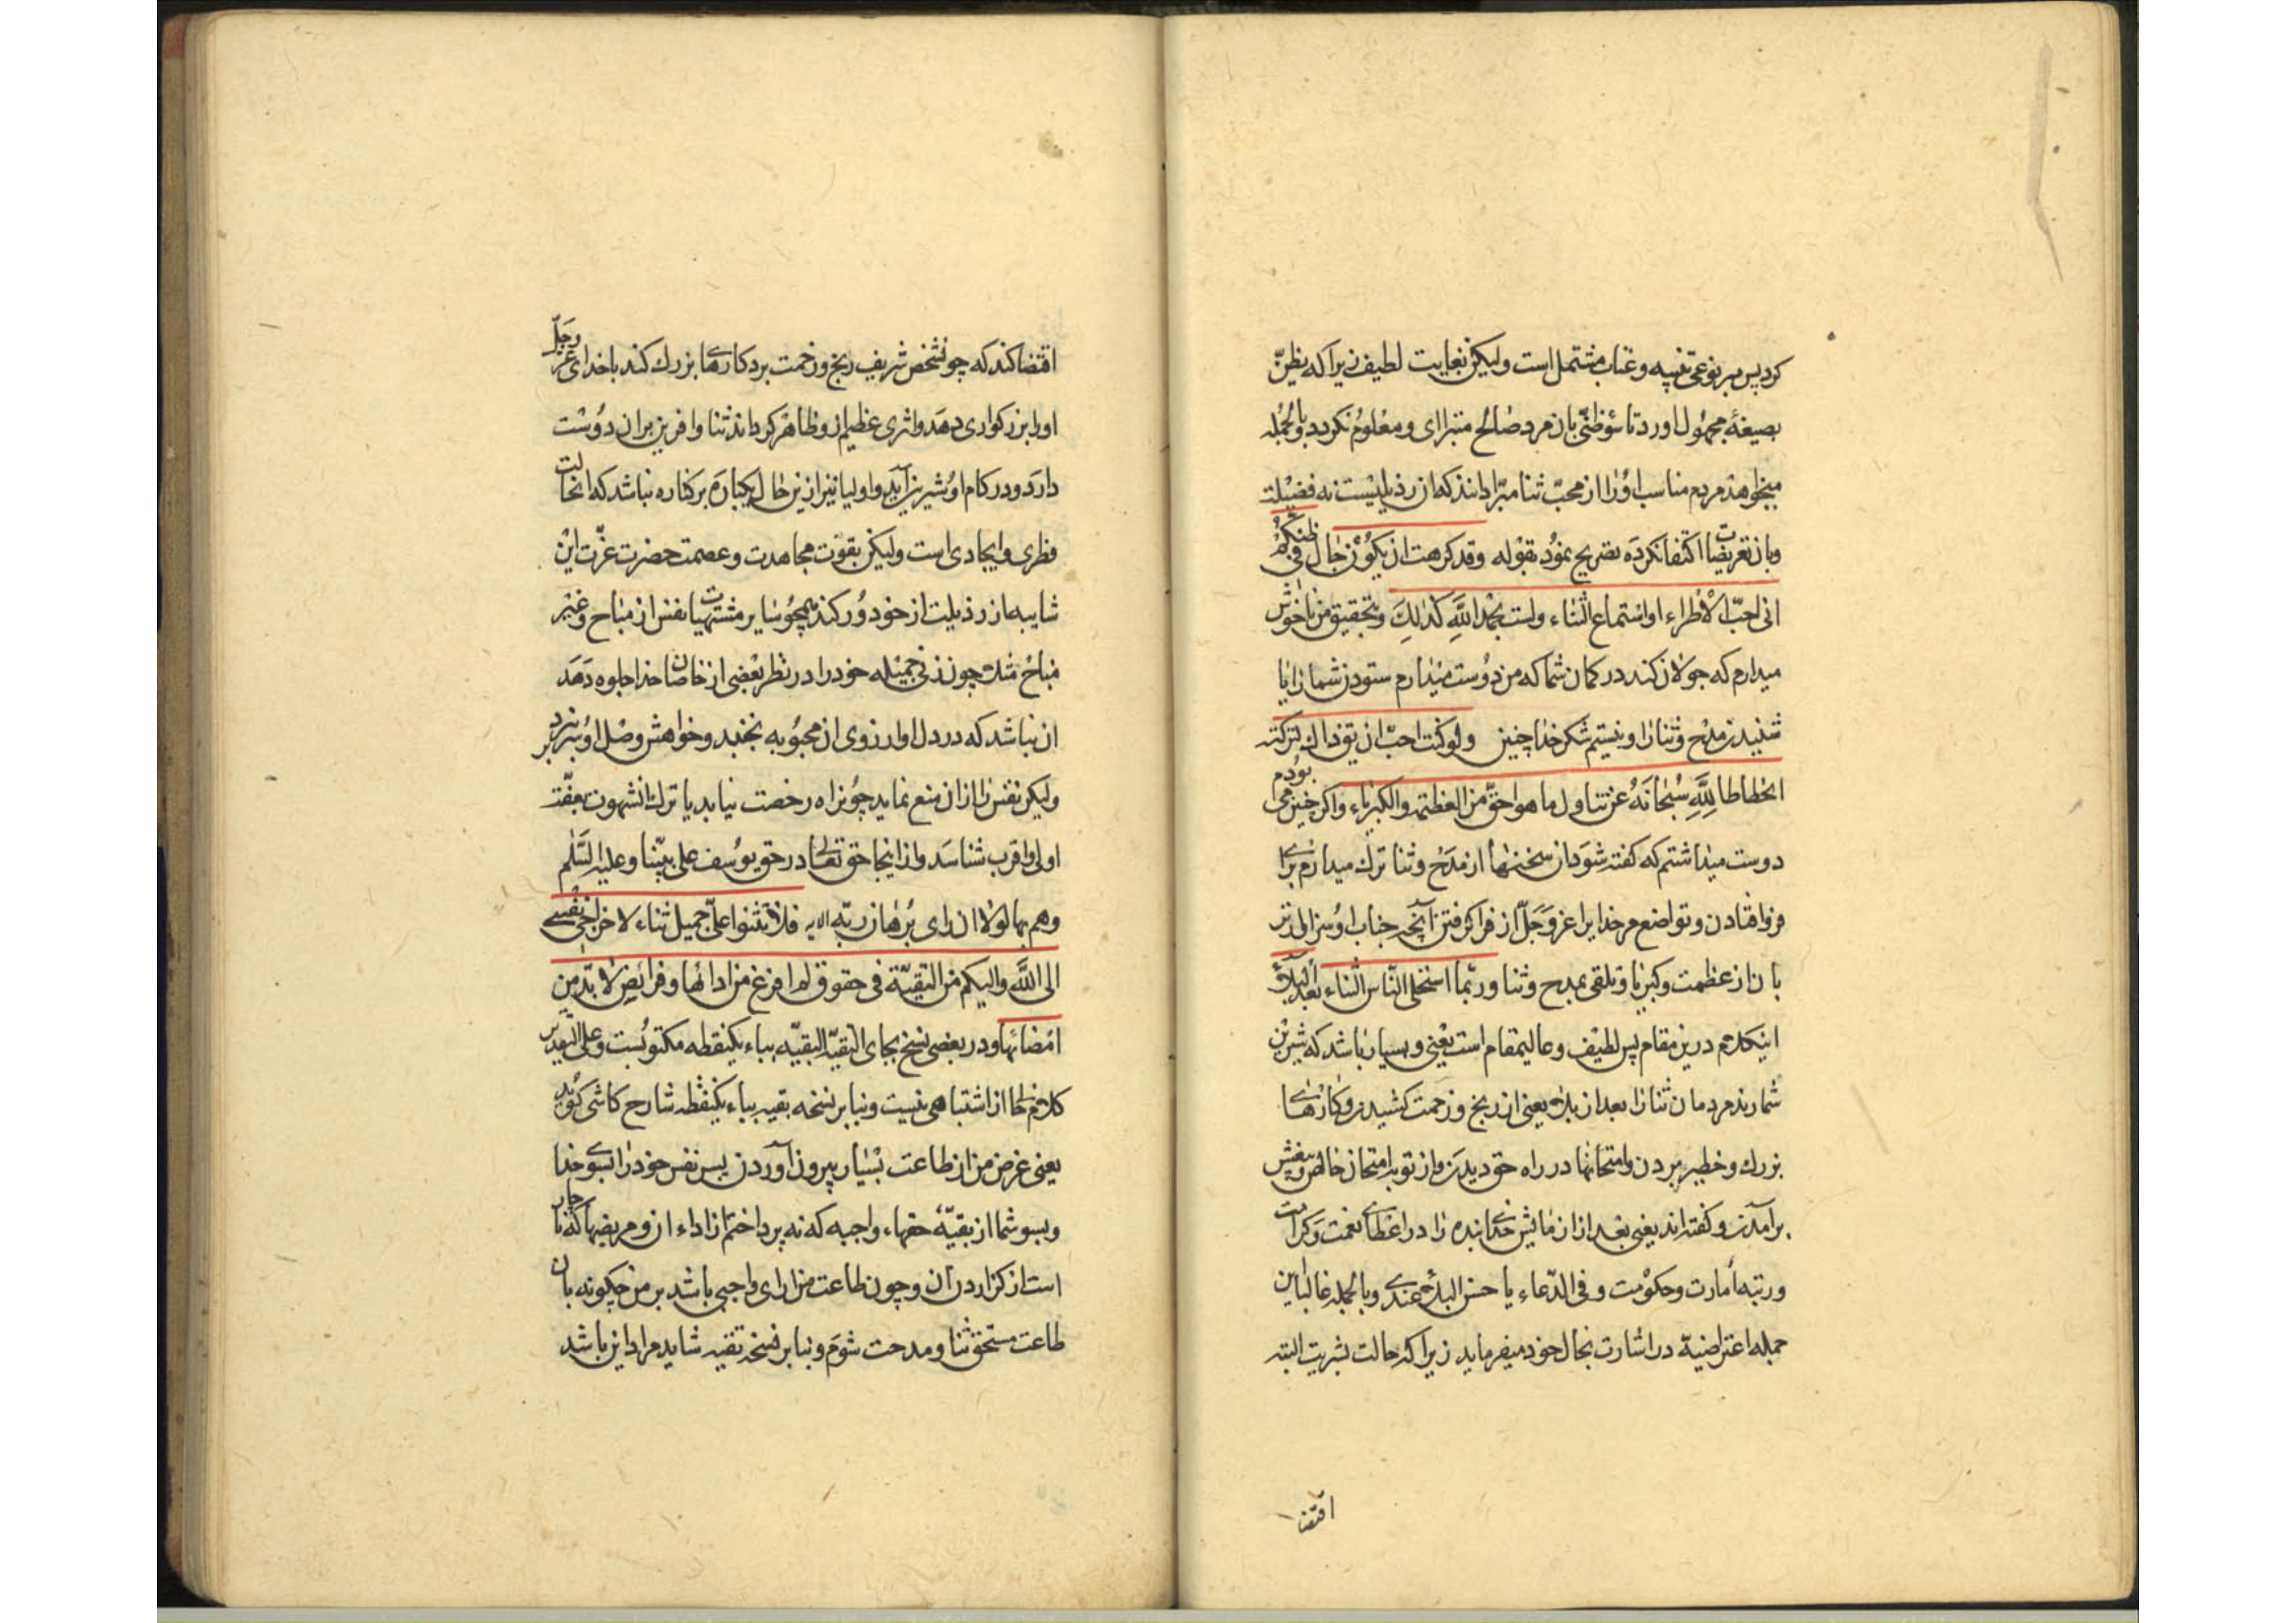 کرد پس بر نوعی تنبیه و عتاب مشتمل است ولیکن بغایت لطیف زیرا که یظنّ
بصیغهٔ مجهول اورد تا سؤ ظنّی بان مرد صالح متبرا ای و معلوم نکردد و بالجمله
میخواهد مردم مناسب او را از محبّ ثنا مبرّا دانند که ان رذیلیست نه فضیلت
و بان تعریضات اکتفا نکرده تصریح نمود بقوله وقد کرهت ان یکون جال فی ظنکم
انی احبّ الاطراء او استماع الثناء ولست بحمد اللَّهِ کذلِكَ و بتحقیق من ناخوش
میدارم که جولان کند در کمان شما که من دوست میدارم ستودن شما را یا
شنیدن مدح و ثنا را و نیستم شکر خدا چنین ولو کنت احبّ ان یقال ذاك لترکته
انحطاطا لِلَّهِ سُبْحانَهُ عن تناول ما هو احقّ من العظمة والکبریاء و اکر چنین می بودم
دوست میداشتم که کفته شود ان سخنها از مدح و ثنا ترك میدارم برای
فرو افتادن و تواضع مر خدایرا عزّ و جَلّ از فرا کرفتن آنچه جناب او سزاوارتر
بان از عظمت و کبریا و تلقی بمدح و ثنا وربّما استحلی النّاس الثناء بعد البلاء
اینکلام درین مقام پس لطیف و عالیمقام است یعنی و بسیار باشد که شیرین
شمارند مردمان ثنا را بعد از بلاء یعنی از رنج و زحمت کشیدن و کارهای
بزرك و خطیر بردن و امتحانها در راه حق دیدن و از توبه امتحان خالص و بیغش
برآمدن و کفته اند یعنی بعد از ازمایش خدا بنده را در اعطای نعمت و کرامت
و رتبه امارت و حکومت و فی الدّعاء یا حسن البلاء عندی و بالجمله غالبا این
جمله اعتراضیة در اشارت بحال خود میفرماید زیرا که حالت بشریت البته
اقتضا
اقتضا کند که چون شخص شریف رنج و زحمت برد کارهای بزرك کند با خدای عزّ وجَلّ
او را بزرکواری دهد و اثری عظیم از و ظاهر کرداند ثنا و افرین بران دوست
دارد و در کام او شیرین آید و اولیا نیز ازین حال یکباره بر کناره نباشد که انحالت
فطری و ایجادی است ولیکن بقوّت مجاهدت و عصمت حضرت عزّت این
شایبه از رذیلت از خود دور کند همچو سایر مشتهیات نفس از مباح و غیر
مباح مثلت چون زنی جمیله خود را در نظر بعضی از خاصان خدا جلوه دهد
ان نباشد که در دل او ارزوی ان محبوبه نجنبد و خواهش وصل او سر نزد
ولیکن نفس را از ان منع نماید چون راه رخصت نیابد یا ترك انشهوت بعفّت
اولی و اقرب شناسد و از اینجا حق تعالی در حق یوسف علی نبیّنا و علیه السَّلم
وهم بها لولا ان رای برهان ربّه الایه فلا تثنوا علیّ جمیل ثناء لاخراجی نفسی
الی اللَّه والیکم من التقیّة فی حقوق لم افرغ من ادائها و فرائض لا بدّ من
امضائها و در بعضی نسخ بجای التقیّه البقیّه بباء یکنقطه مکتوبست و علی التقدیرین
کلام خالی از اشتباهی نیست و بنا بر نسخه بقیه بباء یکنقطه شارح کاشی کوید
یعنی غرض من از طاعت بسیار بیرون آوردن پس نفس خود را بسوی خدا
و بسوی شما از بقیّهٔ حقهاء واجبه که نه پرداختم از اداء ان و مریضها که ناچار
است از کزاردن آن و چون طاعت من ارای واجبی باشد بر من چکونه بان
طاعت مستحق ثنا و مدحت شوم و بنا بر نسخه تقیه شاید مراد این باشد